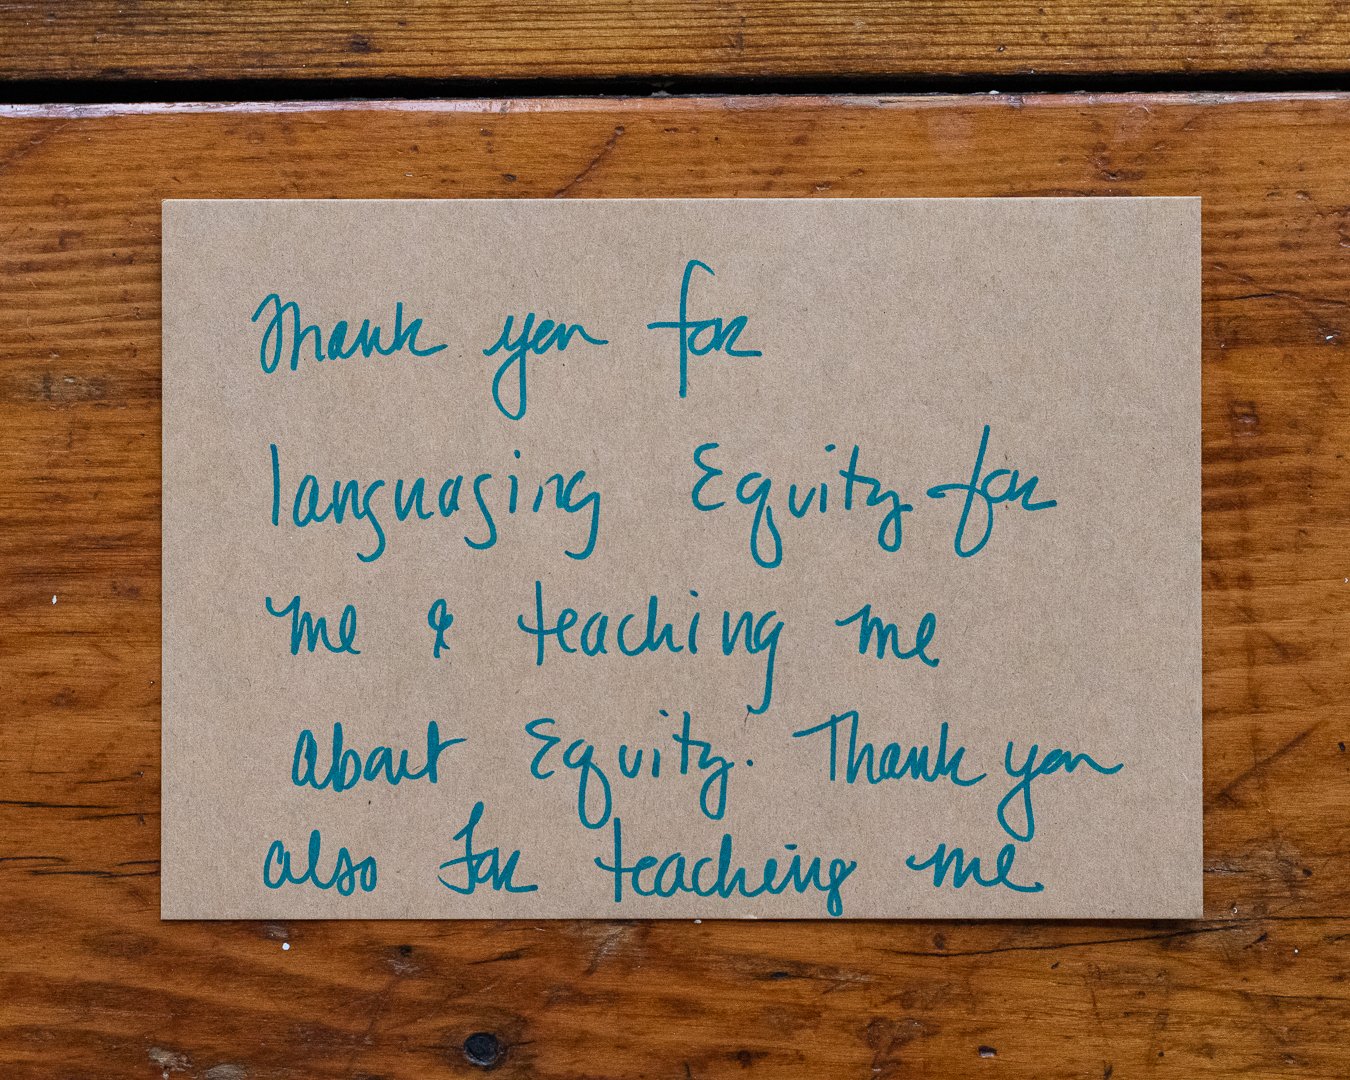 Thank you for
languaging Equity for
me & teaching me
about Equity. Thank you
also for teaching me